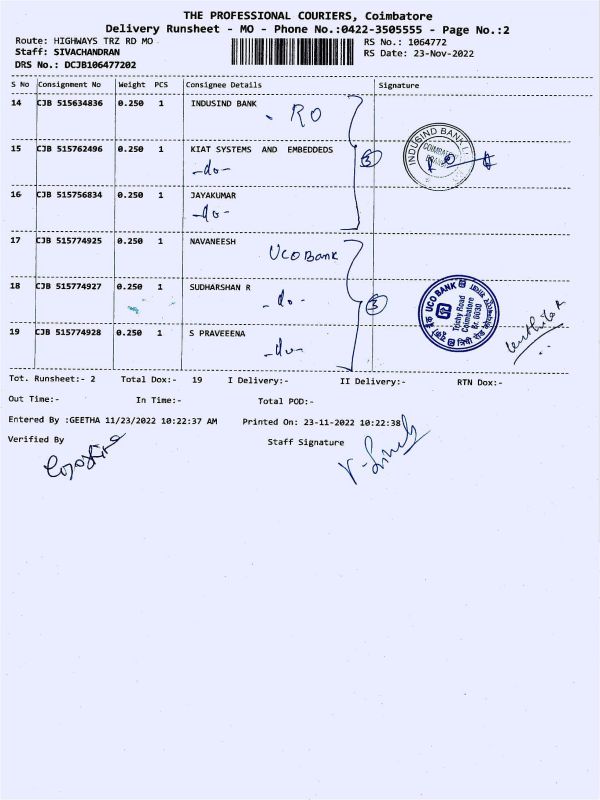 THE PROFESSIONAL COURIERS, Coimbatore
Delivery Runsheet - MO - Phone No.:0422-3505555 - Page No.:2
Route: HIGHWAYS TRZ RD MO
RS No.: 1064772
Staff: SIVACHANDRAN
RS Date: 23-Nov-2022
DRS No.: DCJB106477202
S No Consignment No Weight PCS Consignee Details Signature
14 CJB 515634836 0.250 1 INDUSIND BANK
RO
INDUSIND BANK
COIMBATORE
15 CJB 515762496 0.250 1 KIAT SYSTEMS AND EMBEDDEDS
-do-
3
16 CJB 515756834 0.250 1 JAYAKUMAR
-do-
17 CJB 515774925 0.250 1 NAVANEESH
UCO Bank
18 CJB 515774927 0.250 1 SUDHARSHAN R
-do-
3
UCO BANK
Trichy Road
Coimbatore
Br. 0030
19 CJB 515774928 0.250 1 S PRAVEEENA
-do-
Tot. Runsheet:- 2 Total Dox:- 19 I Delivery:- II Delivery:- RTN Dox:-
Out Time:- In Time:- Total POD:-
Entered By :GEETHA 11/23/2022 10:22:37 AM Printed On: 23-11-2022 10:22:38
Verified By Staff Signature